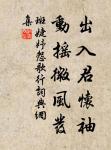 出入君懷袖
動搖微風發
班婕妤怨歌行詞典網
集